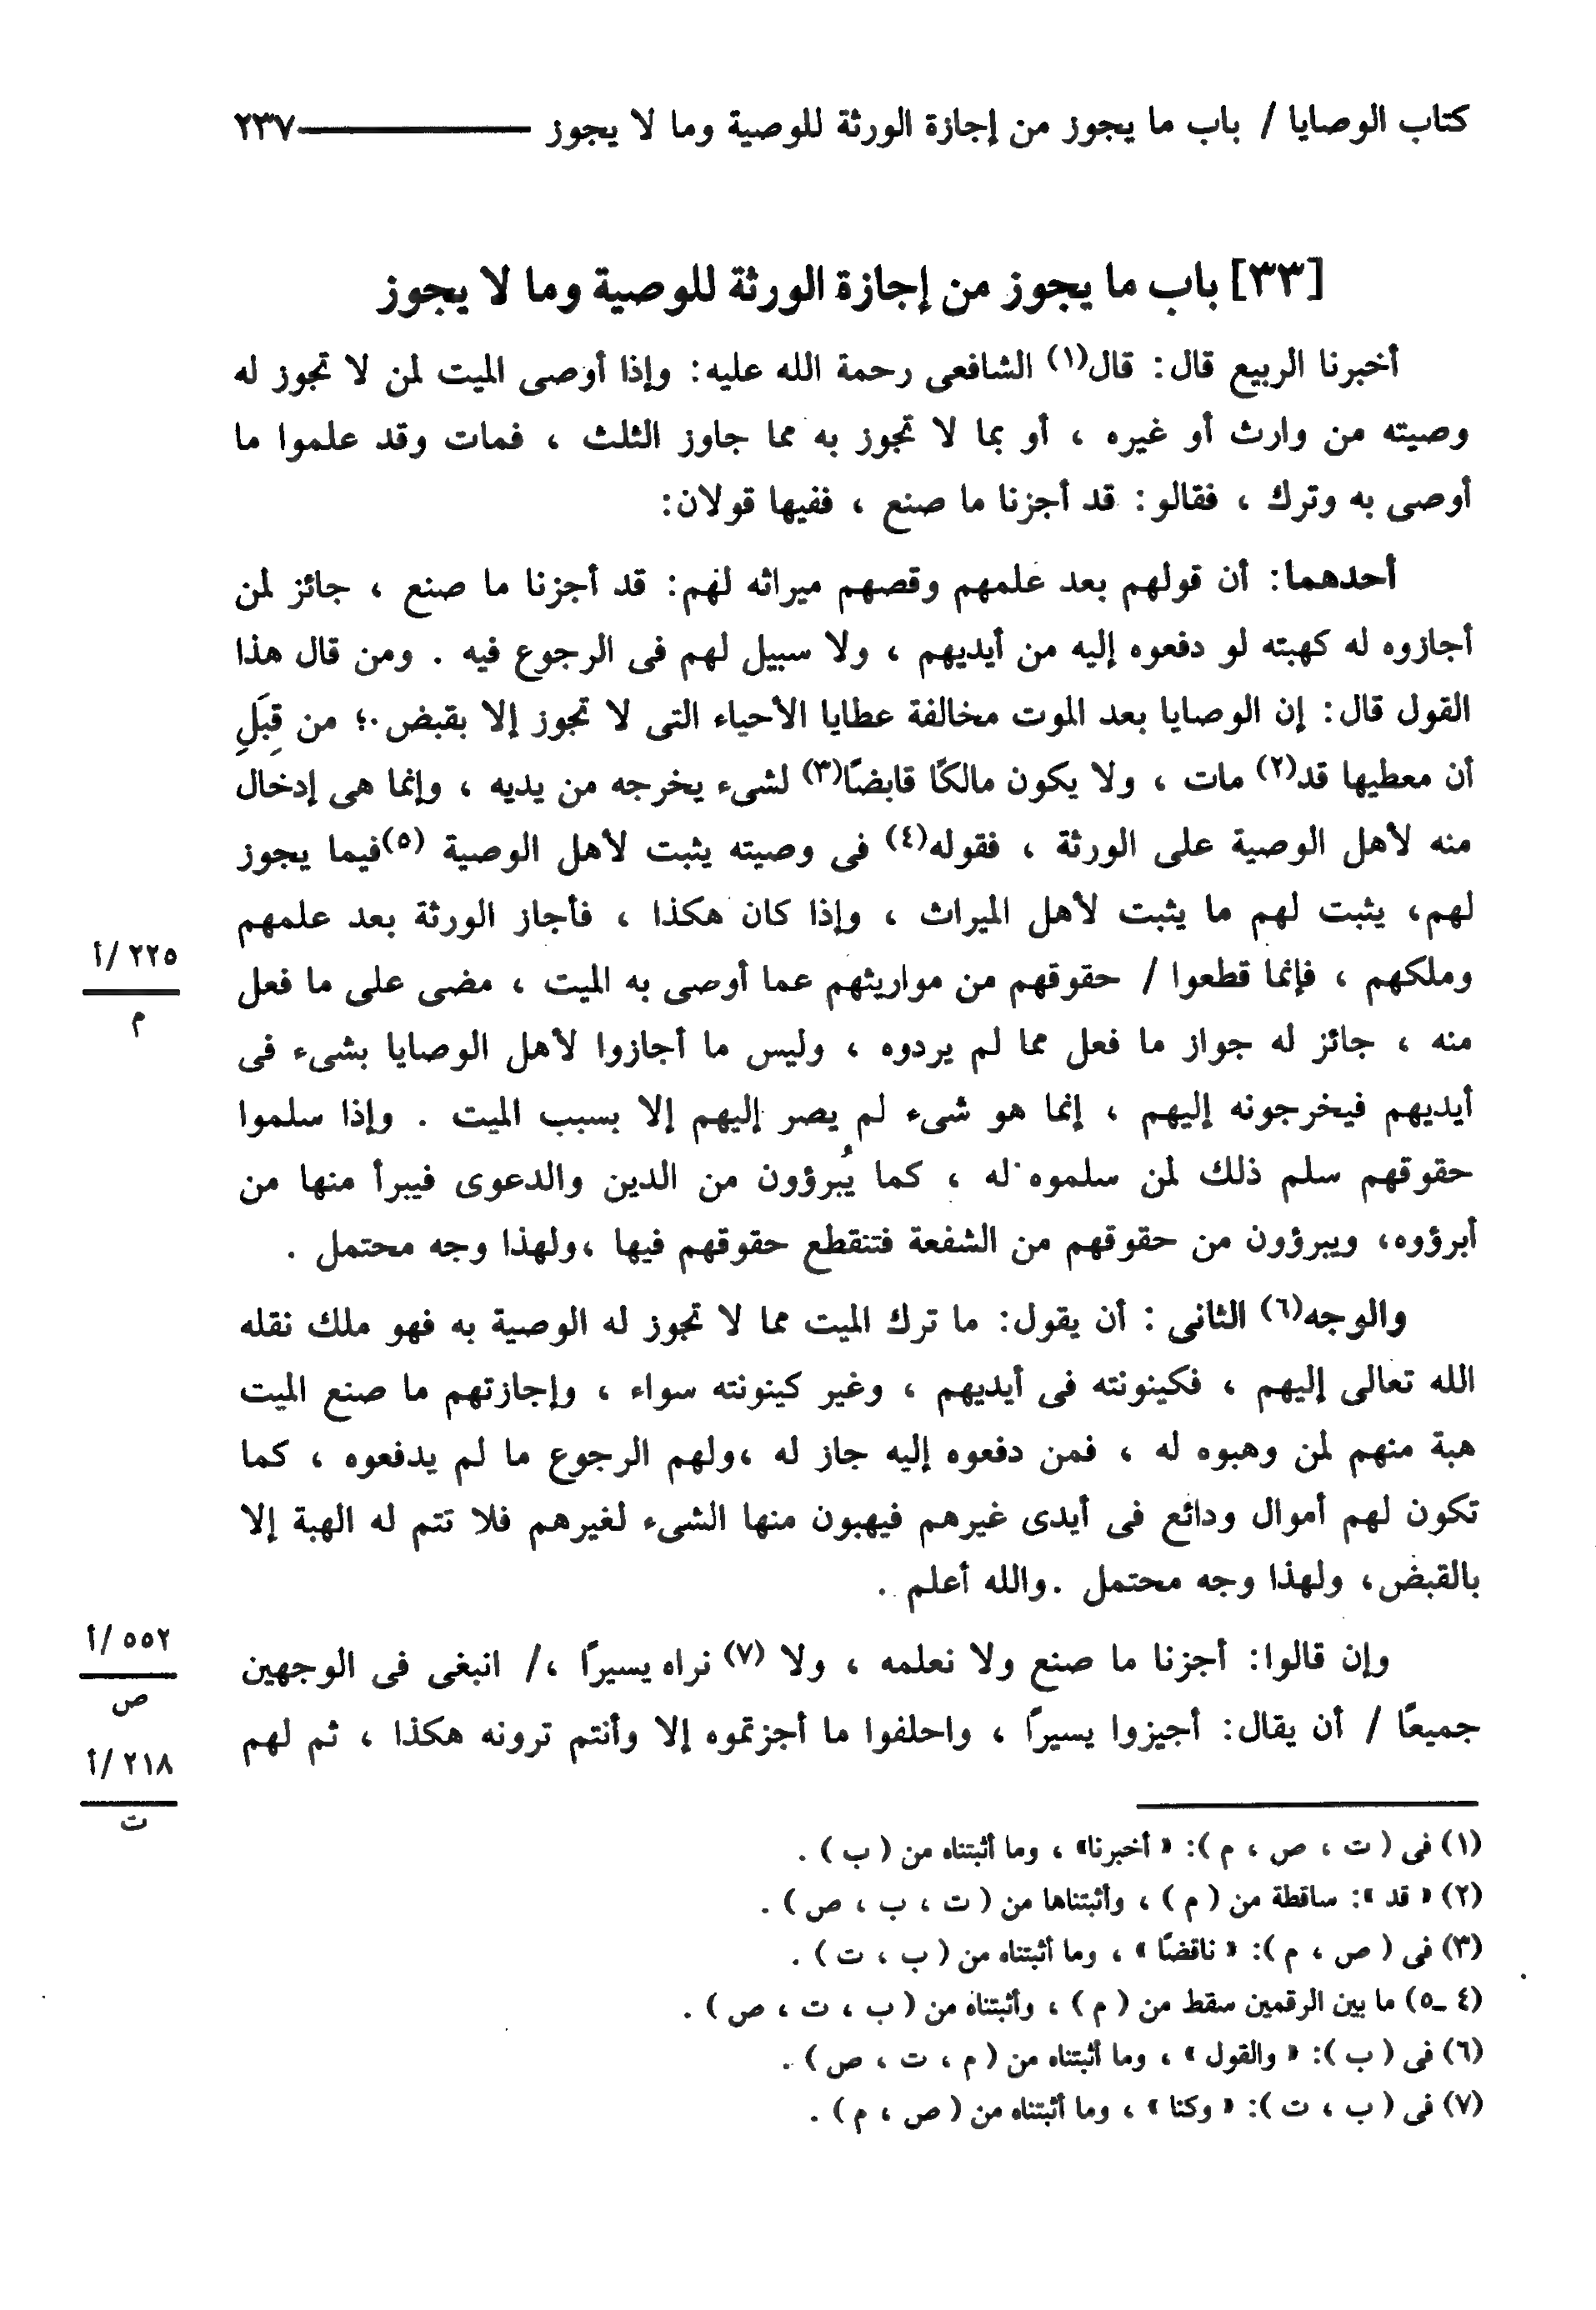 كتاب الوصايا / باب ما يجوز من إجازة الورثة للوصية وما لا يجوز ــــــــــــ ٢٣٧
[٣٣] باب ما يجوز من إجازة الورثة للوصية وما لا يجوز
أخبرنا الربيع قال: قال(١) الشافعى رحمة الله عليه: وإذا أوصى الميت لمن لا تجوز له
وصيته من وارث أو غيره ، أو بما لا تجوز به مما جاوز الثلث ، فمات وقد علموا ما
أوصى به وترك ، فقالو: قد أجزنا ما صنع ، ففيها قولان:
أحدهما: أن قولهم بعد علمهم وقصهم ميراثه لهم: قد أجزنا ما صنع ، جائز لمن
أجازوه له كهبته لو دفعوه إليه من أيديهم ، ولا سبيل لهم فى الرجوع فيه . ومن قال هذا
القول قال: إن الوصايا بعد الموت مخالفة عطايا الأحياء التى لا تجوز إلا بقبض ؛ من قِبَلِ
أن معطيها قد(٢) مات ، ولا يكون مالكًا قابضًا(٣) لشىء يخرجه من يديه ، وإنما هى إدخال
منه لأهل الوصية على الورثة ، فقوله(٤) فى وصيته يثبت لأهل الوصية (٥)فيما يجوز
لهم، يثبت لهم ما يثبت لأهل الميراث ، وإذا كان هكذا ، فأجاز الورثة بعد علمهم
وملكهم ، فإنما قطعوا / حقوقهم من مواريثهم عما أوصى به الميت ، مضى على ما فعل
٢٢٥ /أ
م
منه ، جائز له جواز ما فعل مما لم يردوه ، وليس ما أجازوا لأهل الوصايا بشىء فى
أيديهم فيخرجونه إليهم ، إنما هو شىء لم يصر إليهم إلا بسبب الميت . وإذا سلموا
حقوقهم سلم ذلك لمن سلموه له ، كما يُبرؤون من الدين والدعوى فيبرأ منها من
أبرؤوه، ويبرؤون من حقوقهم من الشفعة فتنقطع حقوقهم فيها ،ولهذا وجه محتمل .
والوجه(٦) الثانى : أن يقول: ما ترك الميت مما لا تجوز له الوصية به فهو ملك نقله
الله تعالى إليهم ، فكينونته فى أيديهم ، وغير كينونته سواء ، وإجازتهم ما صنع الميت
هبة منهم لمن وهبوه له ، فمن دفعوه إليه جاز له ،ولهم الرجوع ما لم يدفعوه ، كما
تكون لهم أموال ودائع فى أيدى غيرهم فيهبون منها الشىء لغيرهم فلا تتم له الهبة إلا
بالقبض، ولهذا وجه محتمل .والله أعلم .
وإن قالوا: أجزنا ما صنع ولا نعلمه ، ولا (٧) نراه يسيرًا ،/ انبغى فى الوجهين
٥٥٢ /أ
ص
جميعًا / أن يقال: أجيزوا يسيرًا ، واحلفوا ما أجزتموه إلا وأنتم ترونه هكذا ، ثم لهم
٢١٨ /أ
ت
(١) فى ( ت ، ص ، م ): « أخبرنا» ، وما أثبتناه من ( ب ) .
(٢) « قد »: ساقطة من ( م ) ، وأثبتناها من ( ت ، ب ، ص ) .
(٣) فى ( ص ، م ): « ناقضًا » ، وما أثبتناه من ( ب ، ت ) .
(٤ ـ٥) ما بين الرقمين سقط من ( م ) ، وأثبتناه من ( ب ، ت ، ص ) .
(٦) فى ( ب ): « والقول » ، وما أثبتناه من ( م ، ت ، ص ) .
(٧) فى ( ب ، ت ): « وكنا » ، وما أثبتناه من ( ص ، م ) .